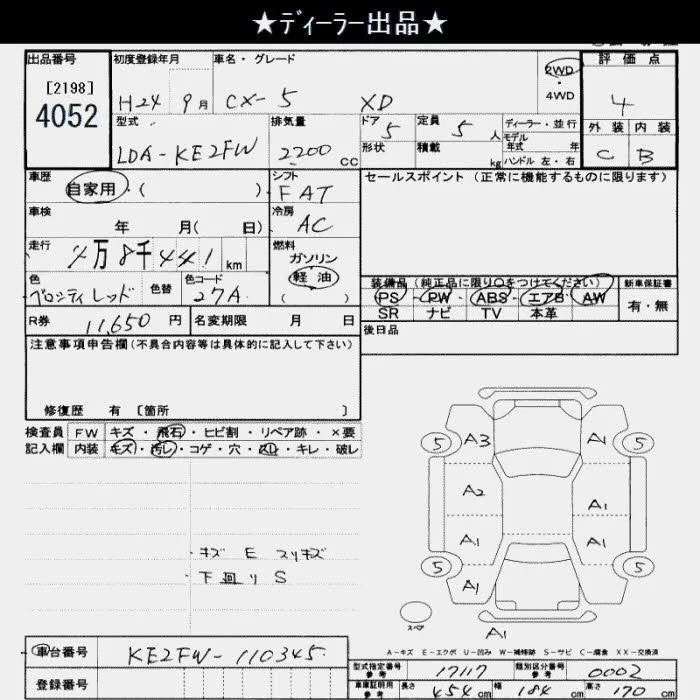 ★ディーラー出品★
出品番号
[2198]
4052
初度登録年月
H24 9月
車名・グレード
CX-5 XD
2WD
・
4WD
評価点
4
外装 内装
C B
型式
LDA-KE2FW
排気量
2200 CC
ドア 5
形状
定員 5 人
積載 kg
ディーラー・並行
モデル
年式 年
ハンドル 左・右
車歴
自家用 ・( )
シフト
FAT
セールスポイント(正常に機能するものに限ります)
車検
年 月( 日)
冷房
AC
走行
万8千441 km
燃料
ガソリン
軽油
( )
色
レッド
色替
色コード
27A
装備品(純正品に限り○をつけてください)
PS・PW・ABS・エアB・AW
SR ナビ TV 本革
新車保証書
有・無
R券 11,650 円
名変期限 月 日
後日品
注意事項申告欄(不具合内容等は具体的に記入して下さい)
修復歴 有 [箇所 ]
検査員
記入欄
FW キズ・飛石・ヒビ割・リペア跡・×要
内装 キズ・汚レ・コゲ・穴・スレ・キレ・破レ
5 A3 A1 5
A2 A1
A1 A1
5 A1 A1 5
・キズ E スリキズ
・下回り S
スペア
A1
A-キズ E-エクボ U-凹み W-補修跡 S-サビ C-腐食 XX-交換済
車台番号
KE2FW-110345
登録番号
型式指定番号
参考
17117
類別区分番号
参考
0002
車庫証明用
参考
長さ 454cm 幅 184cm 高さ 170cm